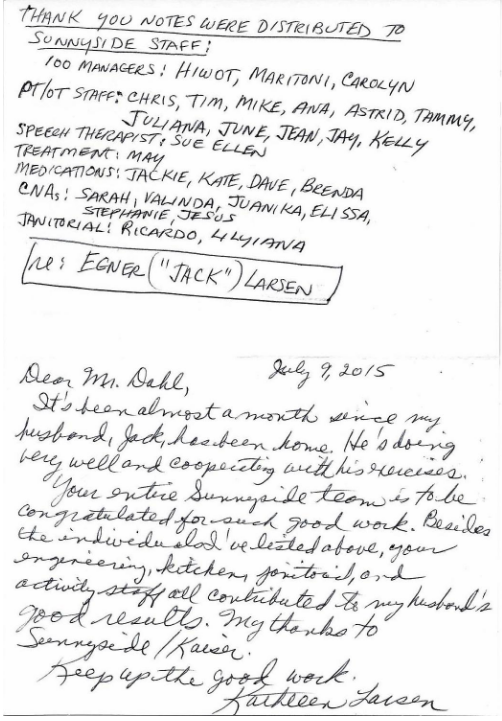 THANK YOU NOTES WERE DISTRIBUTED TO
SUNNYSIDE STAFF:
100 MANAGERS: HIWOT, MARITONI, CAROLYN
PT/OT STAFF: CHRIS, TIM, MIKE, ANA, ASTRID, TAMMY,
JULIANA, JUNE, JEAN, JAY, KELLY
SPEECH THERAPIST: SUE ELLEN
TREATMENT: MAY
MEDICATIONS: JACKIE, KATE, DAVE, BRENDA
CNAs: SARAH, VALINDA, JUANIKA, ELISSA,
STEPHANIE, JESUS
JANITORIAL: RICARDO, LILYIANA
re: EGNER ("JACK") LARSEN
July 9, 2015
Dear Mr. Dahl,
It's been almost a month since my
husband, Jack, has been home. He's doing
very well and cooperating with his exercises.
Your entire Sunnyside team is to be
congratulated for such good work. Besides
the individuals I've listed above, your
engineering, kitchen, janitorial, and
activity staff all contributed to my husband's
good results. My thanks to
Sunnyside / Kaiser.
Keep up the good work.
Kathleen Larsen